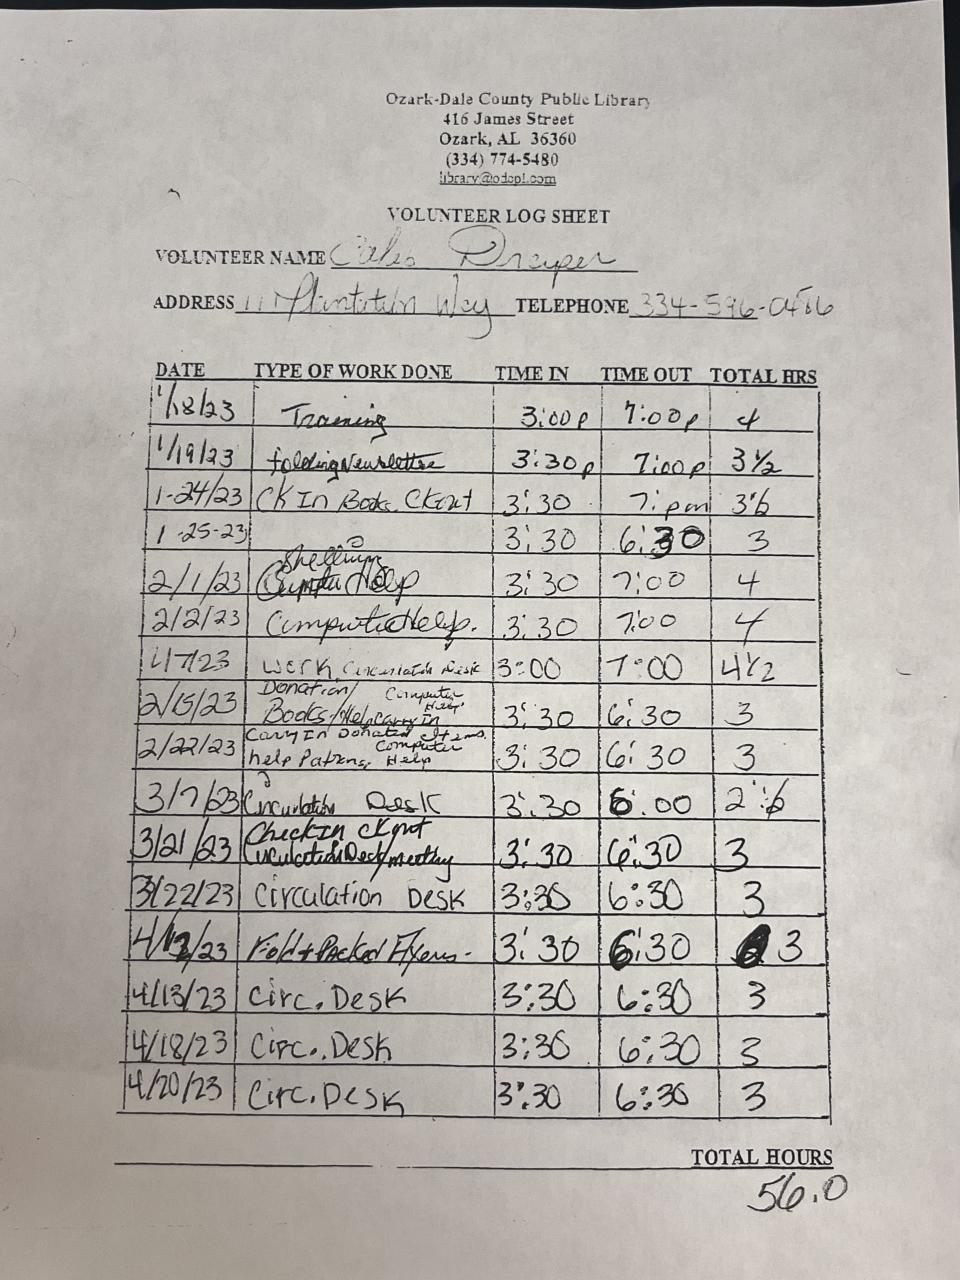 Ozark-Dale County Public Library
416 James Street
Ozark, AL 36360
(334) 774-5480
library@odcpl.com
VOLUNTEER LOG SHEET
VOLUNTEER NAME Draper
ADDRESS Plantation Way TELEPHONE 334-596-0486
DATE TYPE OF WORK DONE TIME IN TIME OUT TOTAL HRS
1/18/23 Training 3:00p 7:00p 4
1/19/23 folding Newsletter 3:30p 7:00p 3 1/2
1-24/23 CK In Books CKout 3:30 7:pm
1-25-23 3:30 6:30 3
Shelving
2/1/23 Computer Help 3:30 7:00 4
2/2/23 Computer Help. 3:30 7:00 4
7/23 Work Circulation Desk 3:00 7:00 4 1/2
Donation/ Computer Help
2/15/23 Books/Help carry In 3:30 6:30 3
Carry In Donated Items.
2/22/23 help Patrons, Computer Help 3:30 6:30 3
3/7/23 Circulation Desk 3:30 6:00
Check In CKout
3/21/23 Circulation Desk/meeting 3:30 6:30 3
3/22/23 Circulation Desk 3:30 6:30 3
4/12/23 Fold + Packed Flyers. 3:30 6:30 3
4/13/23 Circ. Desk 3:30 6:30 3
4/18/23 Circ. Desk 3:30 6:30 3
4/20/23 Circ. Desk 3:30 6:30 3
TOTAL HOURS
56.0